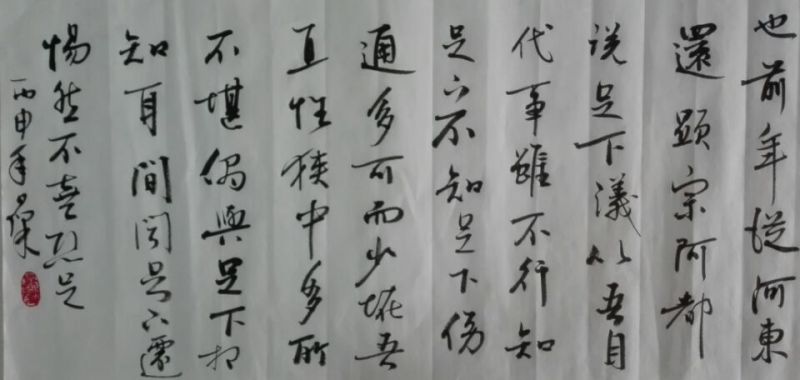 也前年從河東
還顯宗阿都
說足下議以吾自
代事雖不行知
足下不知足下傍
通多可而少恠吾
直性狹中多所
不堪偶與足下相
知耳間聞足下遷
惕然不喜恐足
丙申年